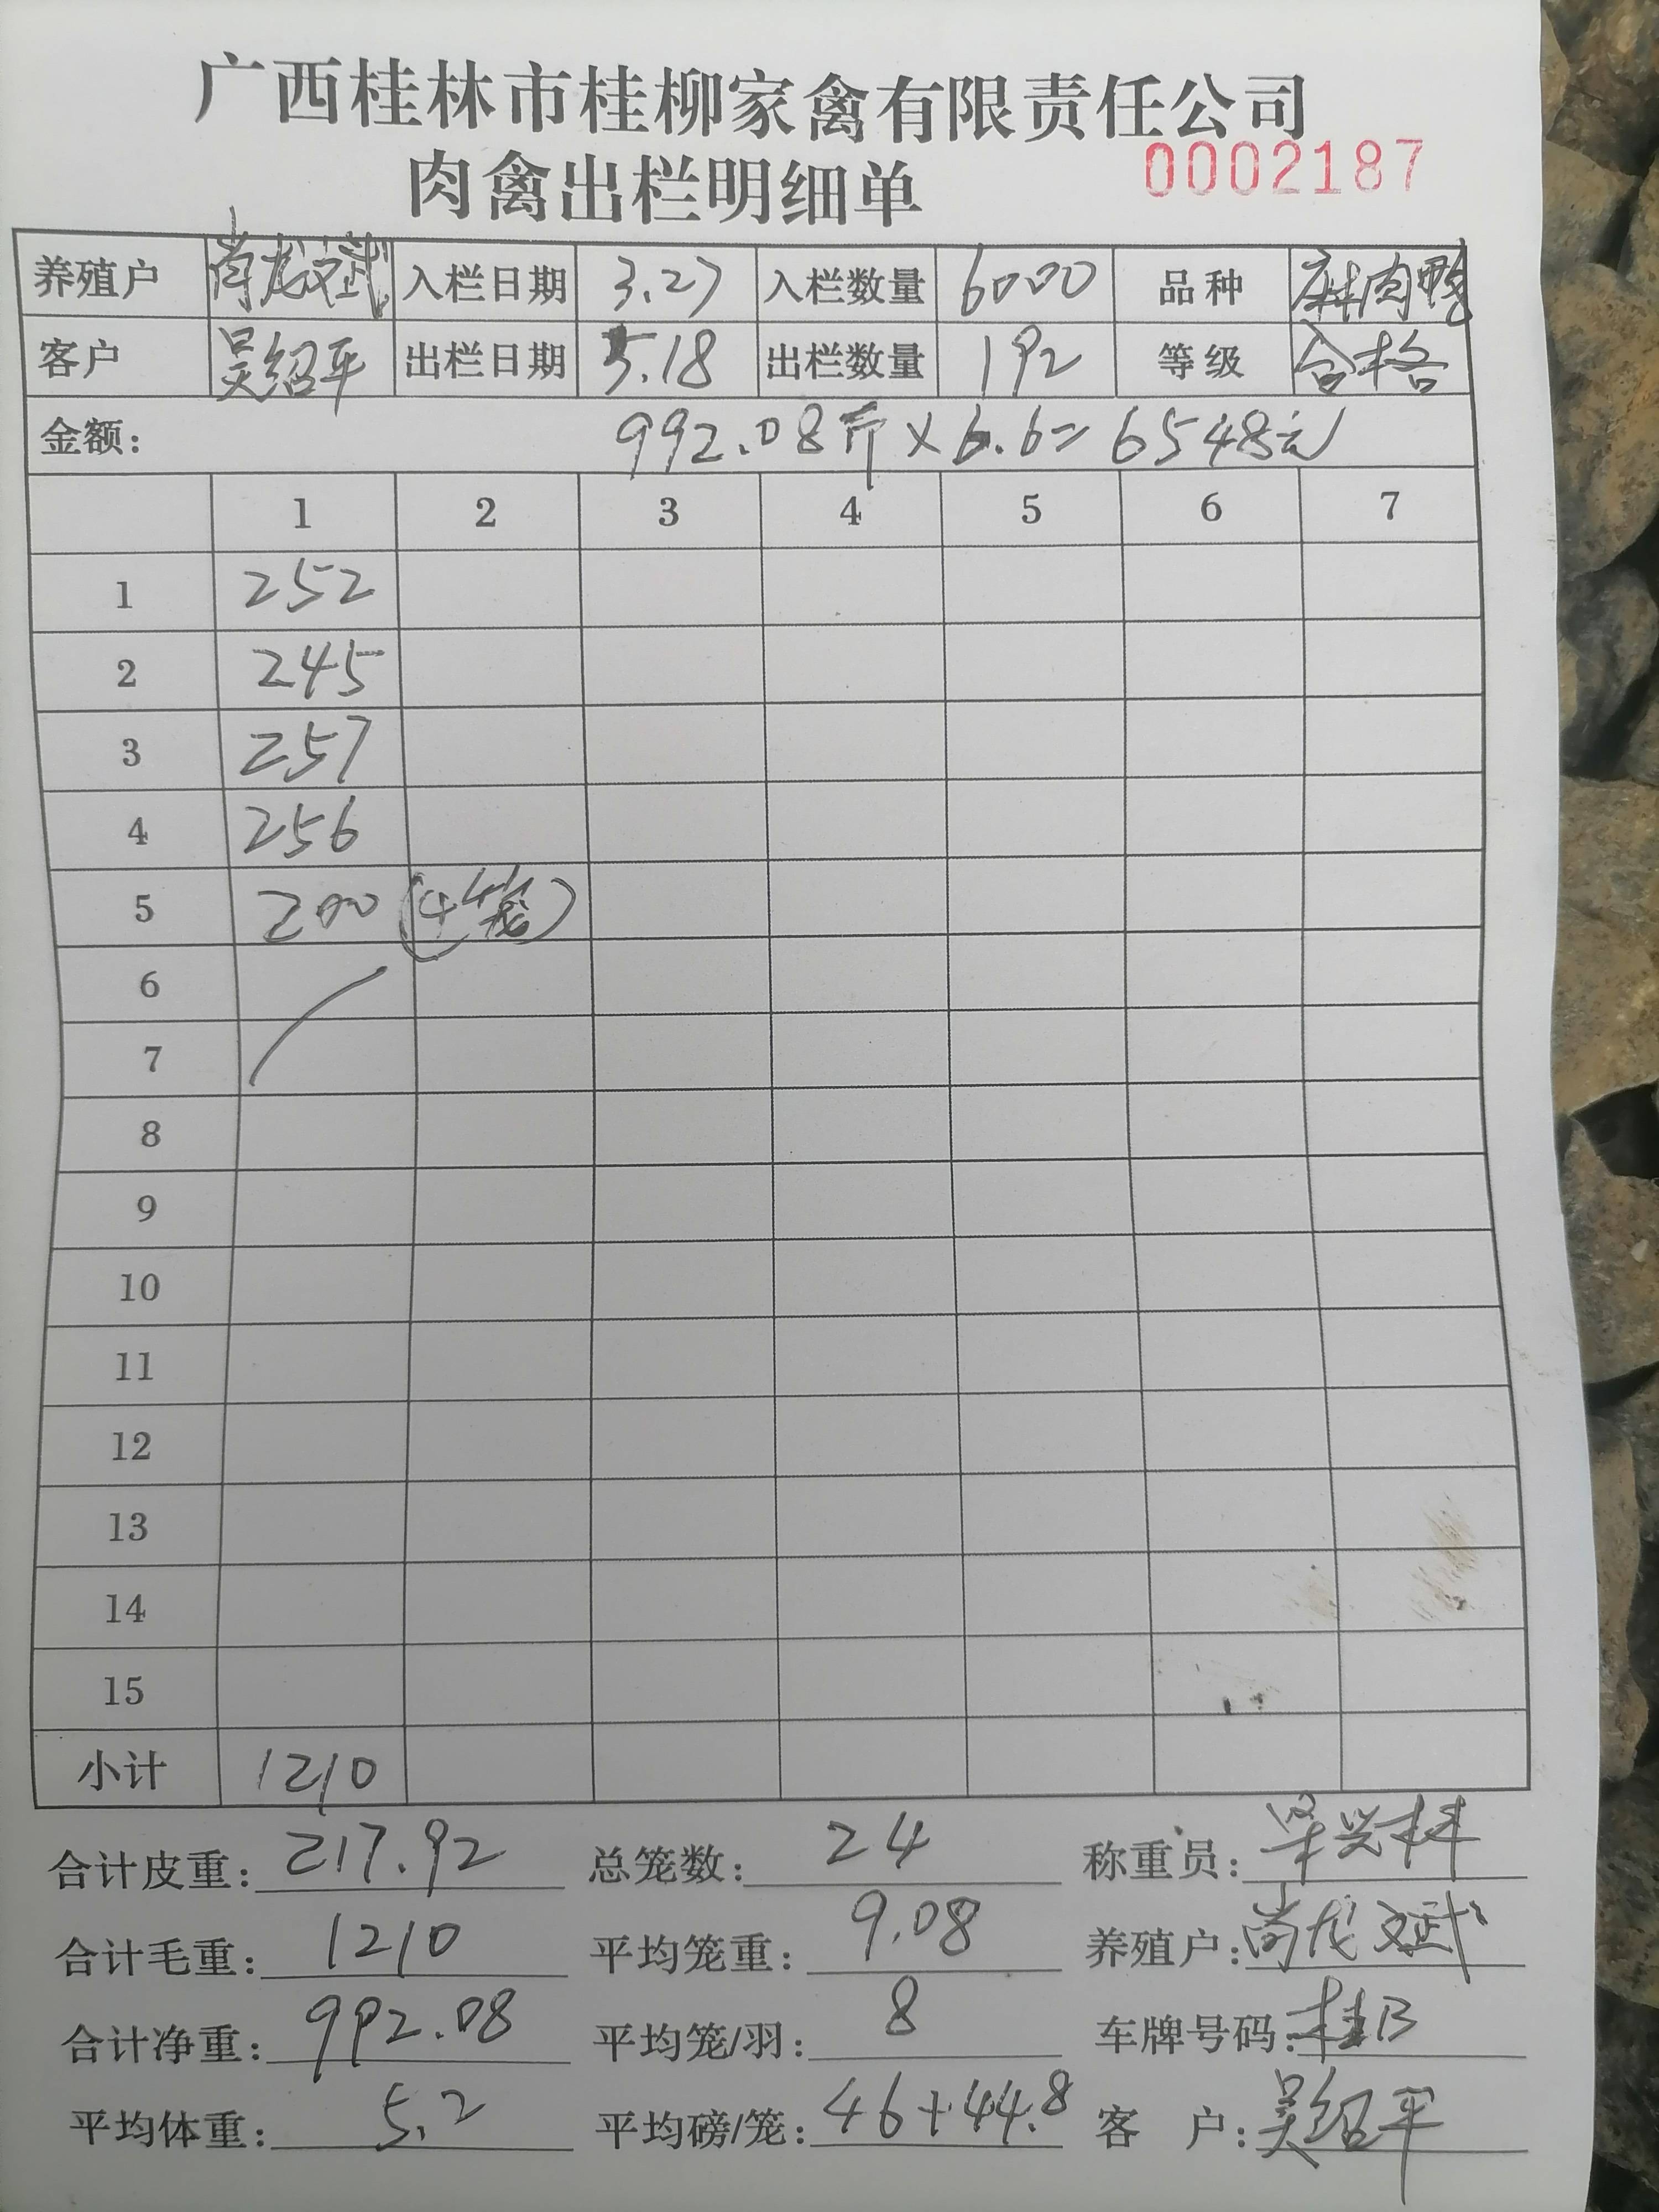 广西桂林市桂柳家禽有限责任公司
肉禽出栏明细单 0002187
养殖户 尚龙斌 入栏日期 3.27 入栏数量 6000 品种 麻肉鸭
客户 吴绍平 出栏日期 5.18 出栏数量 192 等级 合格
金额: 992.08斤×6.6=6548元
1 2 3 4 5 6 7
1 252
2 245
3 257
4 256
5 200 (4笼)
6
7
8
9
10
11
12
13
14
15
小计 1210
合计皮重: 217.92 总笼数: 24 称重员:
合计毛重: 1210 平均笼重: 9.08 养殖户: 尚龙斌
合计净重: 992.08 平均笼/羽: 8 车牌号码: 桂B
平均体重: 5.2 平均磅/笼: 46+44.8 客户: 吴绍平